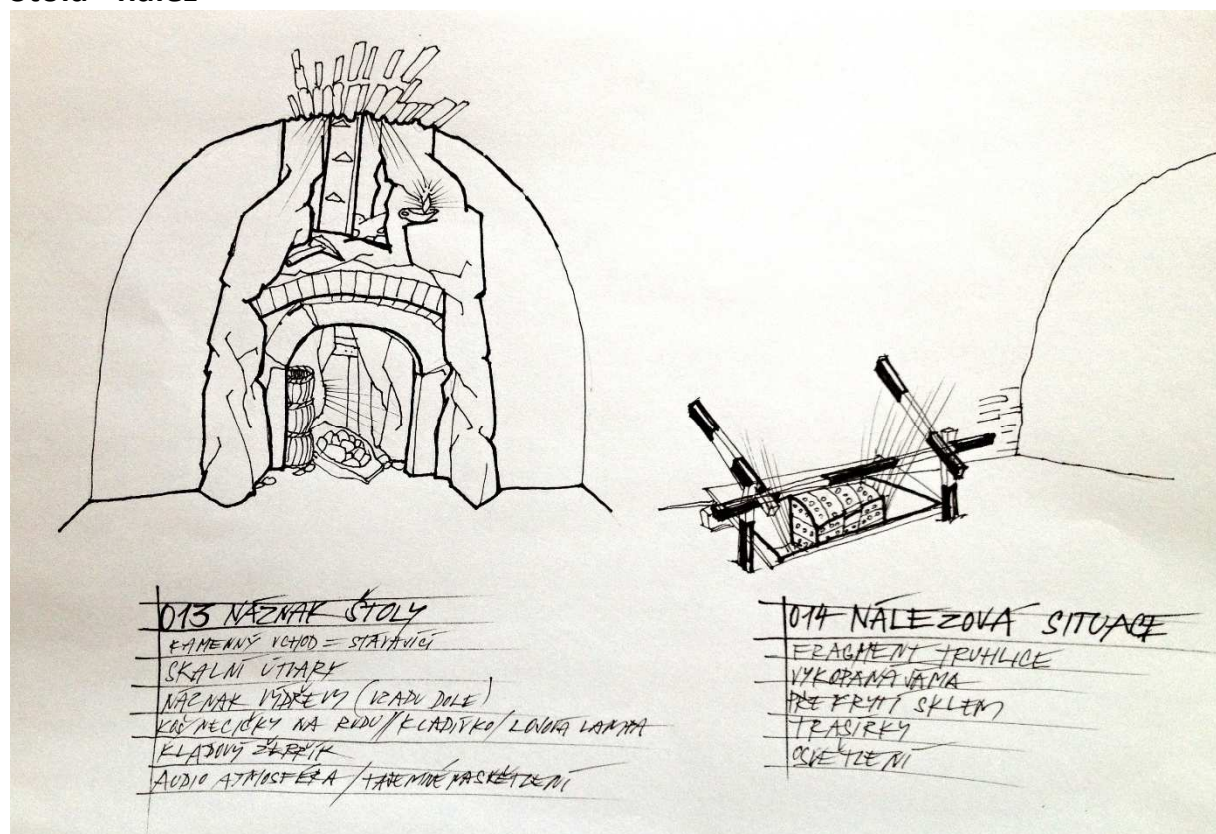 013 NÁZNAK ŠTOLY
KAMENNÝ VCHOD = STÁVAJÍCÍ
SKALNÍ ÚTVARY
NÁZNAK VÝDŘEVY (VZADU DOLE)
NA RUDU / KLADÍVKO / LOJOVÁ LAMPA
KLADOVÝ ŽEBŘÍK
AUDIO ATMOSFÉRA / TAJEMNÉ NASVĚTLENÍ
014 NÁLEZOVÁ SITUACE
FRAGMENT TRUHLICE
VYKOPANÁ JÁMA
PŘEKRYTÍ SKLEM
TRASÍRKY
OSVĚTLENÍ